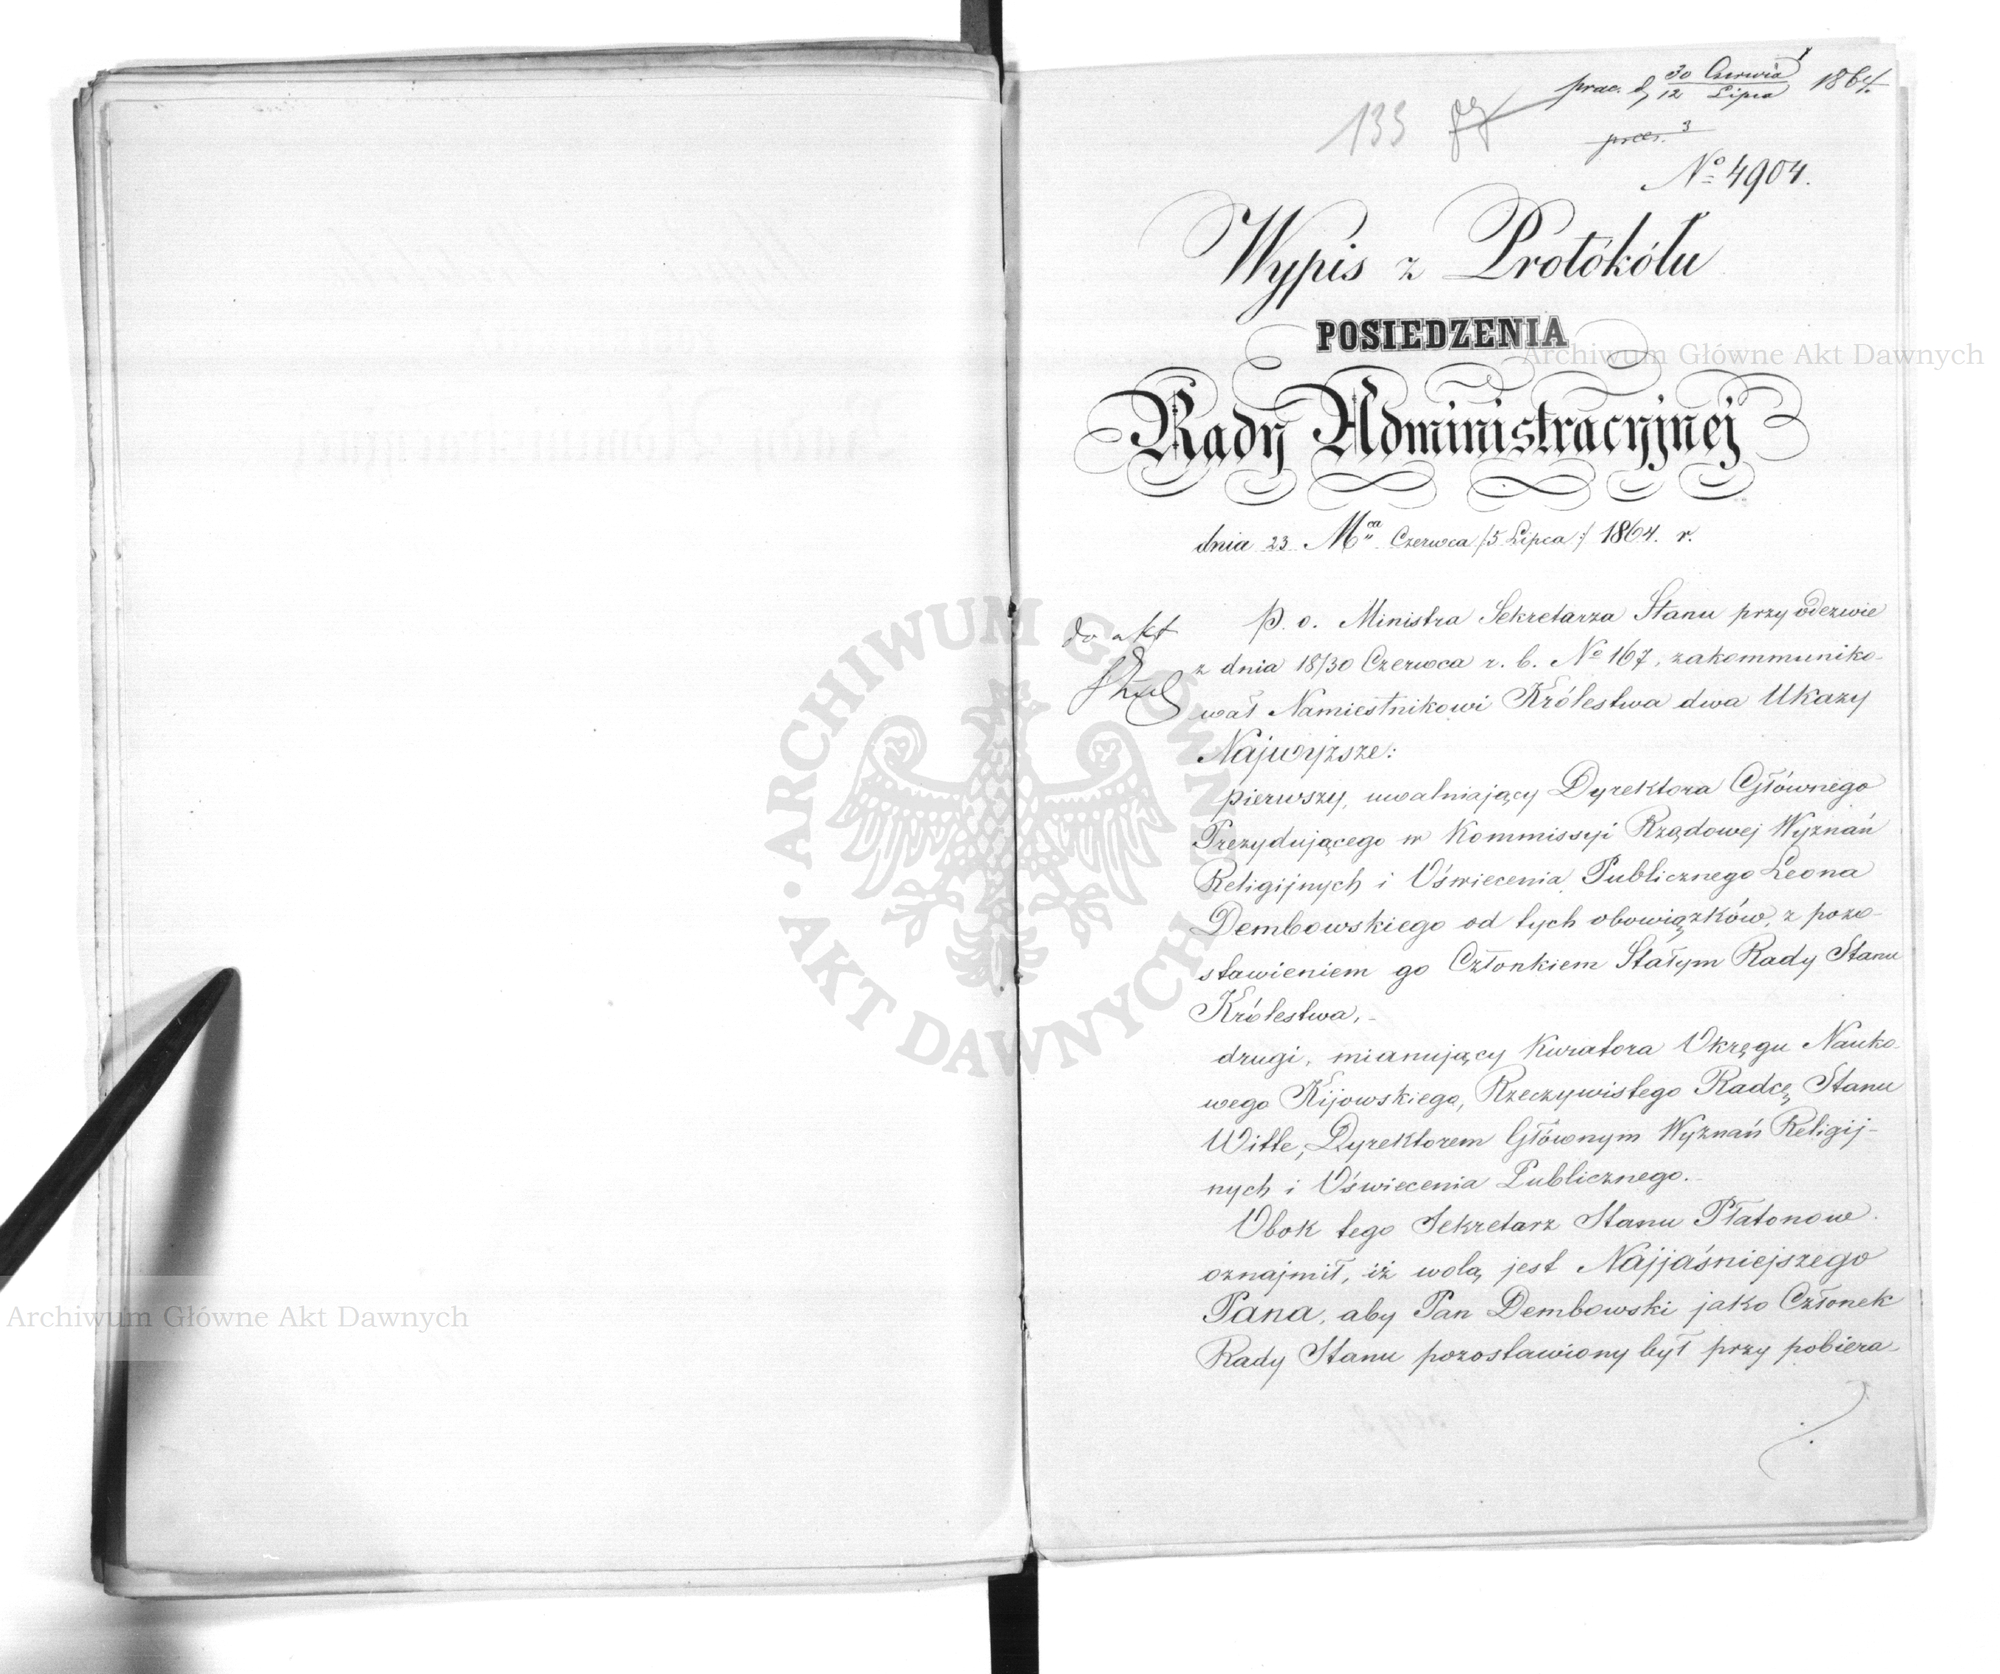 30 Czerwca
12 Lipca
1864.
133
pres. 3
Nº 4904.
Wypis z Protókółu
POSIEDZENIA
Rady Administracyjnej
dnia 23 Mca Czerwca /5 Lipca:/ 1864. r.
do akt
P. o. Ministra Sekretarza Stanu przy odezwie
z dnia 18/30 Czerwca r. b. Nº 167, zakommuniko-
wał Namiestnikowi Królestwa dwa Ukazy
Najwyższe:
pierwszy, uwalniający Dyrektora Głównego
Prezydującego w Kommissyi Rządowej Wyznań
Religijnych i Oświecenia Publicznego Leona
Dembowskiego od tych obowiązków, z pozo-
stawieniem go Członkiem Stałym Rady Stanu
Królestwa, -
drugi, mianujący Kuratora Okręgu Nauko-
wego Kijowskiego, Rzeczywistego Radcę Stanu
Witte, Dyrektorem Głównym Wyznań Religij-
nych i Oświecenia Publicznego.-
Obok tego Sekretarz Stanu Płatonow
oznajmił, iż wolą jest Najjaśniejszego
Pana, aby Pan Dembowski jako Członek
Rady Stanu pozostawiony był przy pobiera-
Archiwum Główne Akt Dawnych
ARCHIWUM GŁÓWNE AKT DAWNYCH
Archiwum Główne Akt Dawnych